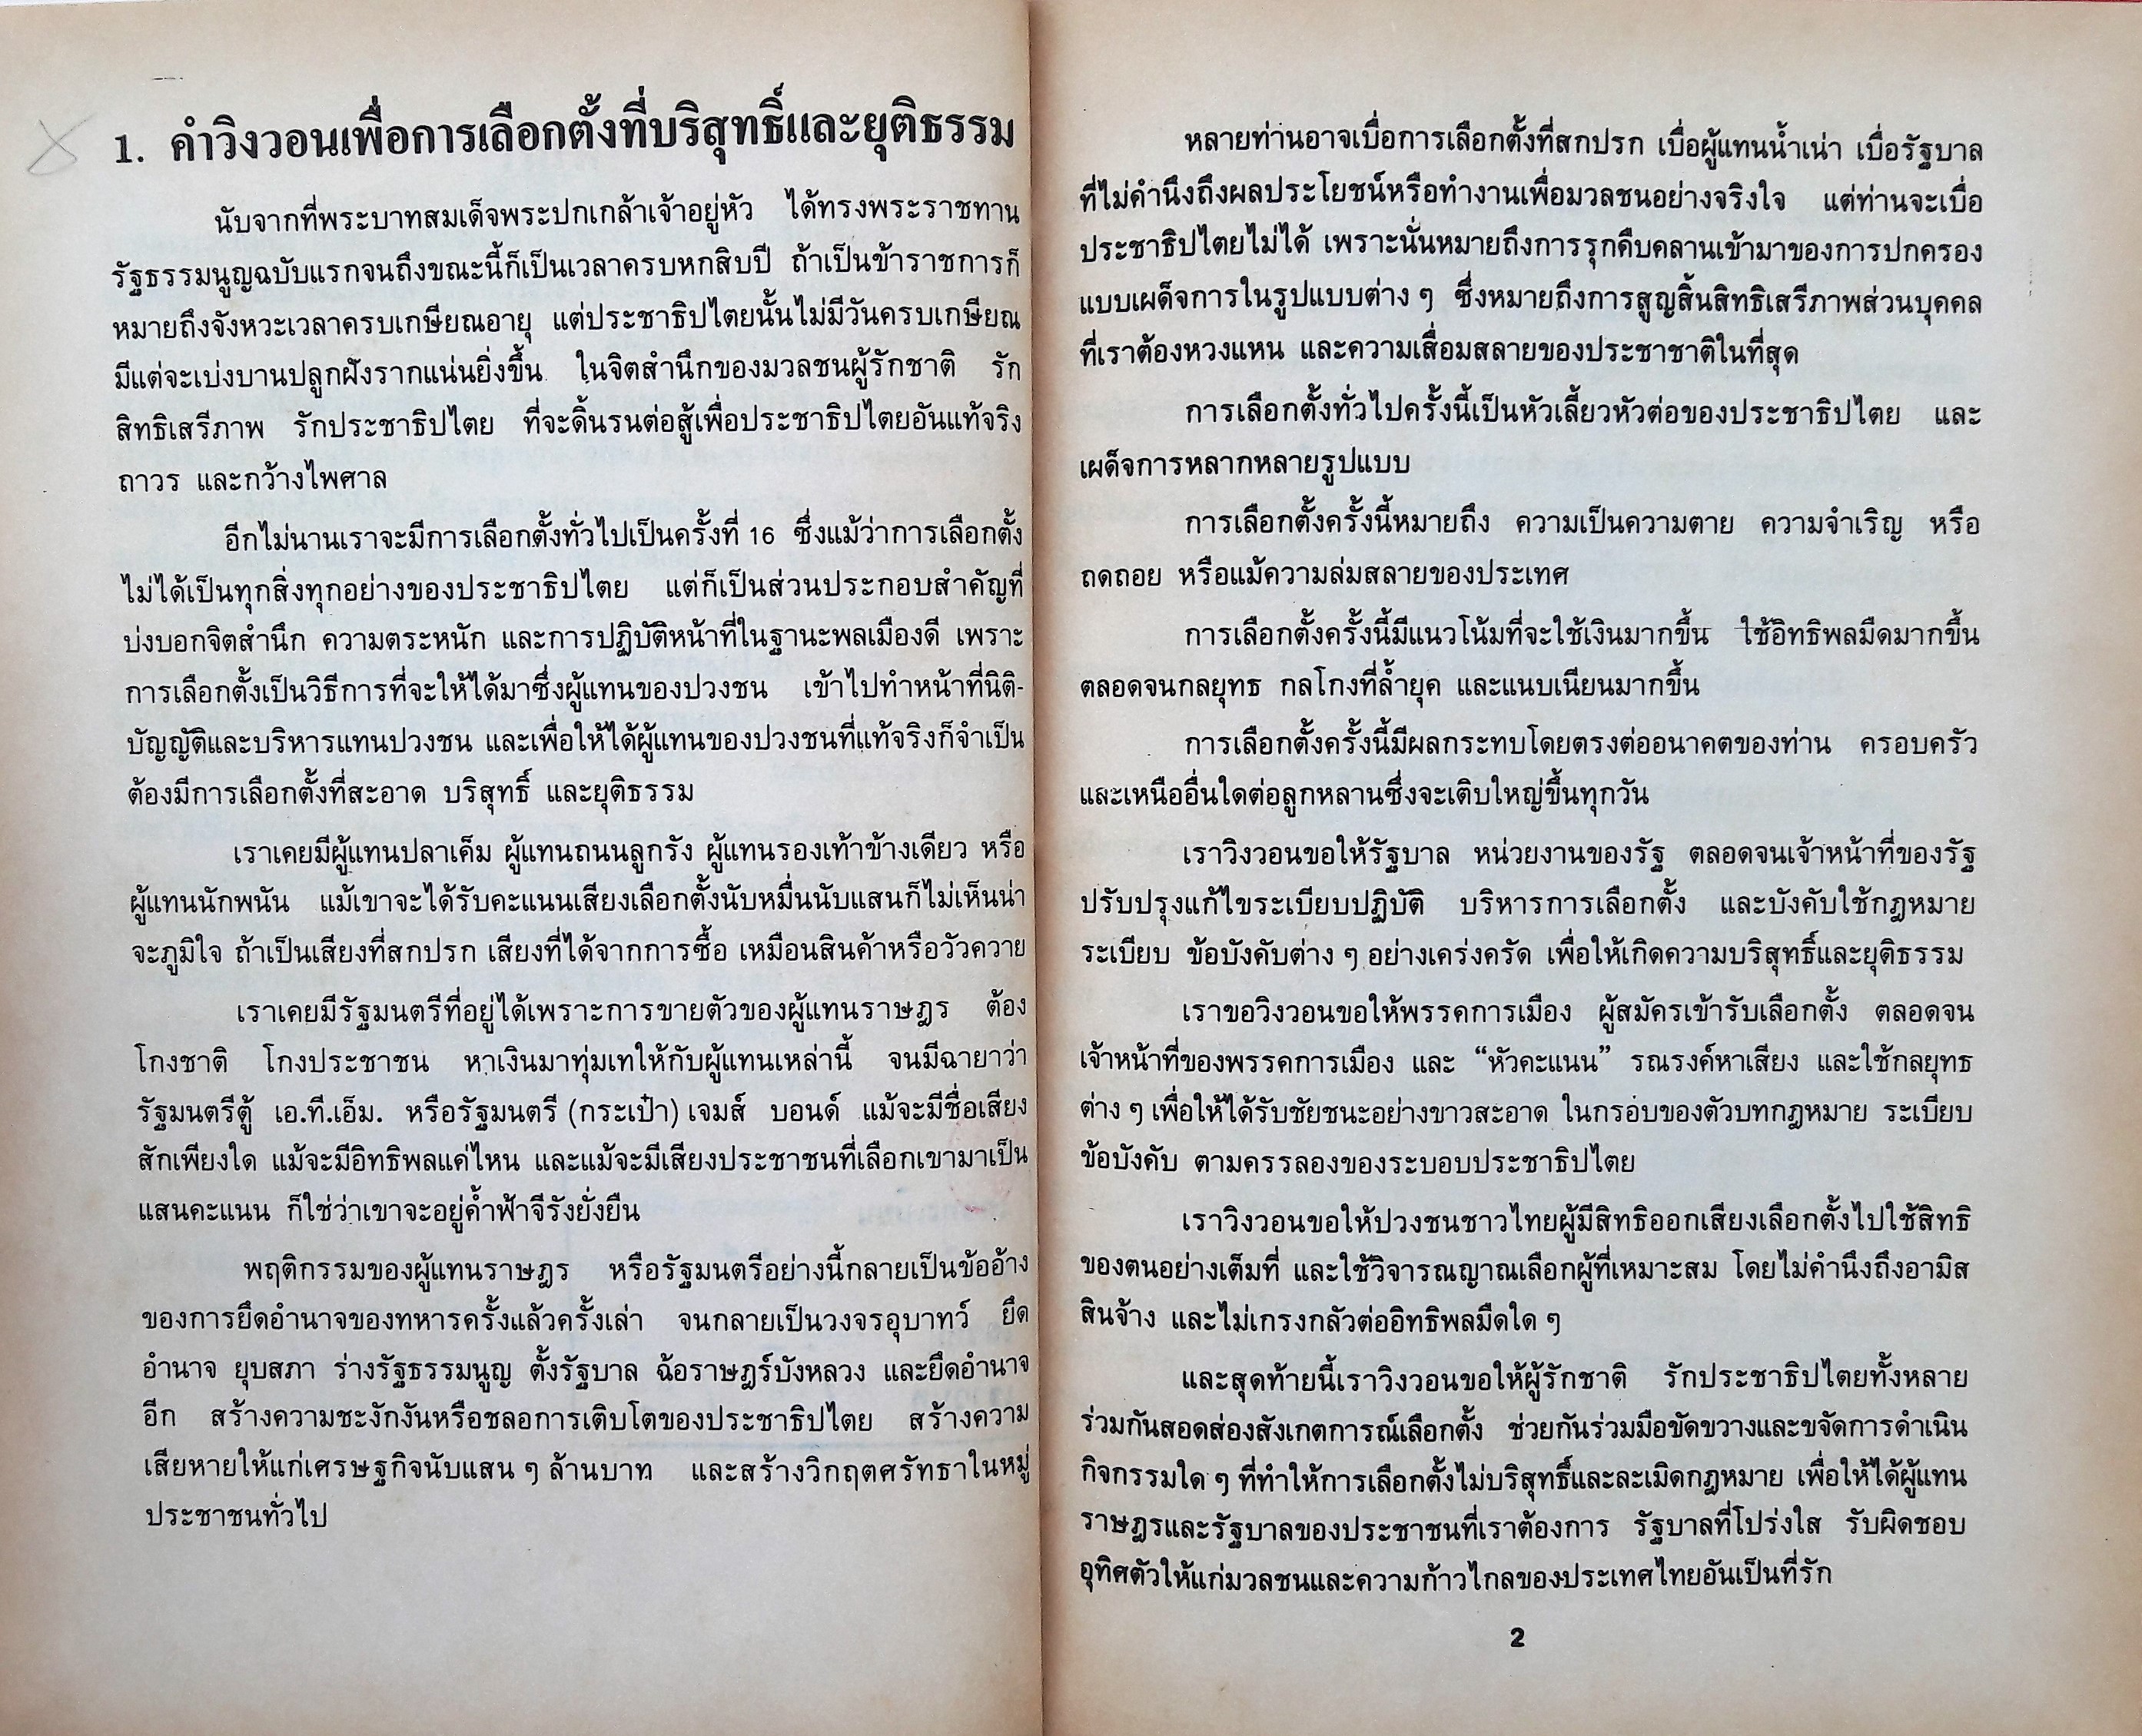 1. คำวิงวอนเพื่อการเลือกตั้งที่บริสุทธิ์และยุติธรรม
นับจากที่พระบาทสมเด็จพระปกเกล้าเจ้าอยู่หัว ได้ทรงพระราชทาน
รัฐธรรมนูญฉบับแรกจนถึงขณะนี้ก็เป็นเวลาครบหกสิบปี ถ้าเป็นข้าราชการก็
หมายถึงจังหวะเวลาครบเกษียณอายุ แต่ประชาธิปไตยนั้นไม่มีวันครบเกษียณ
มีแต่จะเบ่งบานปลูกฝังรากแน่นยิ่งขึ้น ในจิตสำนึกของมวลชนผู้รักชาติ รัก
สิทธิเสรีภาพ รักประชาธิปไตย ที่จะดิ้นรนต่อสู้เพื่อประชาธิปไตยอันแท้จริง
ถาวร และกว้างไพศาล
อีกไม่นานเราจะมีการเลือกตั้งทั่วไปเป็นครั้งที่ 16 ซึ่งแม้ว่าการเลือกตั้ง
ไม่ได้เป็นทุกสิ่งทุกอย่างของประชาธิปไตย แต่ก็เป็นส่วนประกอบสำคัญที่
บ่งบอกจิตสำนึก ความตระหนัก และการปฏิบัติหน้าที่ในฐานะพลเมืองดี เพราะ
การเลือกตั้งเป็นวิธีการที่จะให้ได้มาซึ่งผู้แทนของปวงชน เข้าไปทำหน้าที่นิติ-
บัญญัติและบริหารแทนปวงชน และเพื่อให้ได้ผู้แทนของปวงชนที่แท้จริงก็จำเป็น
ต้องมีการเลือกตั้งที่สะอาด บริสุทธิ์ และยุติธรรม
เราเคยมีผู้แทนปลาเค็ม ผู้แทนถนนลูกรัง ผู้แทนรองเท้าข้างเดียว หรือ
ผู้แทนนักพนัน แม้เขาจะได้รับคะแนนเสียงเลือกตั้งนับหมื่นนับแสนก็ไม่เห็นน่า
จะภูมิใจ ถ้าเป็นเสียงที่สกปรก เสียงที่ได้จากการซื้อ เหมือนสินค้าหรือวัวควาย
เราเคยมีรัฐมนตรีที่อยู่ได้เพราะการขายตัวของผู้แทนราษฎร ต้อง
โกงชาติ โกงประชาชน หาเงินมาทุ่มเทให้กับผู้แทนเหล่านี้ จนมีฉายาว่า
รัฐมนตรีตู้ เอ.ที.เอ็ม. หรือรัฐมนตรี (กระเป๋า) เจมส์ บอนด์ แม้จะมีชื่อเสียง
สักเพียงใด แม้จะมีอิทธิพลแค่ไหน และแม้จะมีเสียงประชาชนที่เลือกเขามาเป็น
แสนคะแนน ก็ใช่ว่าเขาจะอยู่ค้ำฟ้าจีรังยั่งยืน
พฤติกรรมของผู้แทนราษฎร หรือรัฐมนตรีอย่างนี้กลายเป็นข้ออ้าง
ของการยึดอำนาจของทหารครั้งแล้วครั้งเล่า จนกลายเป็นวงจรอุบาทว์ ยึด
อำนาจ ยุบสภา ร่างรัฐธรรมนูญ ตั้งรัฐบาล ฉ้อราษฎร์บังหลวง และยึดอำนาจ
อีก สร้างความชะงักงันหรือชลอการเติบโตของประชาธิปไตย สร้างความ
เสียหายให้แก่เศรษฐกิจนับแสน ๆ ล้านบาท และสร้างวิกฤตศรัทธาในหมู่
ประชาชนทั่วไป
หลายท่านอาจเบื่อการเลือกตั้งที่สกปรก เบื่อผู้แทนน้ำเน่า เบื่อรัฐบาล
ที่ไม่คำนึงถึงผลประโยชน์หรือทำงานเพื่อมวลชนอย่างจริงใจ แต่ท่านจะเบื่อ
ประชาธิปไตยไม่ได้ เพราะนั่นหมายถึงการรุกคืบคลานเข้ามาของการปกครอง
แบบเผด็จการในรูปแบบต่าง ๆ ซึ่งหมายถึงการสูญสิ้นสิทธิเสรีภาพส่วนบุคคล
ที่เราต้องหวงแหน และความเสื่อมสลายของประชาชาติในที่สุด
การเลือกตั้งทั่วไปครั้งนี้เป็นหัวเลี้ยวหัวต่อของประชาธิปไตย และ
เผด็จการหลากหลายรูปแบบ
การเลือกตั้งครั้งนี้หมายถึง ความเป็นความตาย ความจำเริญ หรือ
ถดถอย หรือแม้ความล่มสลายของประเทศ
การเลือกตั้งครั้งนี้มีแนวโน้มที่จะใช้เงินมากขึ้น ใช้อิทธิพลมืดมากขึ้น
ตลอดจนกลยุทธ กลโกงที่ล้ำยุค และแนบเนียนมากขึ้น
การเลือกตั้งครั้งนี้มีผลกระทบโดยตรงต่ออนาคตของท่าน ครอบครัว
และเหนืออื่นใดต่อลูกหลานซึ่งจะเติบใหญ่ขึ้นทุกวัน
เราวิงวอนขอให้รัฐบาล หน่วยงานของรัฐ ตลอดจนเจ้าหน้าที่ของรัฐ
ปรับปรุงแก้ไขระเบียบปฏิบัติ บริหารการเลือกตั้ง และบังคับใช้กฎหมาย
ระเบียบ ข้อบังคับต่าง ๆ อย่างเคร่งครัด เพื่อให้เกิดความบริสุทธิ์และยุติธรรม
เราขอวิงวอนขอให้พรรคการเมือง ผู้สมัครเข้ารับเลือกตั้ง ตลอดจน
เจ้าหน้าที่ของพรรคการเมือง และ “หัวคะแนน” รณรงค์หาเสียง และใช้กลยุทธ
ต่าง ๆ เพื่อให้ได้รับชัยชนะอย่างขาวสะอาด ในกรอบของตัวบทกฎหมาย ระเบียบ
ข้อบังคับ ตามครรลองของระบอบประชาธิปไตย
เราวิงวอนขอให้ปวงชนชาวไทยผู้มีสิทธิออกเสียงเลือกตั้งไปใช้สิทธิ
ของตนอย่างเต็มที่ และใช้วิจารณญาณเลือกผู้ที่เหมาะสม โดยไม่คำนึงถึงอามิส
สินจ้าง และไม่เกรงกลัวต่ออิทธิพลมืดใด ๆ
และสุดท้ายนี้เราวิงวอนขอให้ผู้รักชาติ รักประชาธิปไตยทั้งหลาย
ร่วมกันสอดส่องสังเกตการณ์เลือกตั้ง ช่วยกันร่วมมือขัดขวางและขจัดการดำเนิน
กิจกรรมใด ๆ ที่ทำให้การเลือกตั้งไม่บริสุทธิ์และละเมิดกฎหมาย เพื่อให้ได้ผู้แทน
ราษฎรและรัฐบาลของประชาชนที่เราต้องการ รัฐบาลที่โปร่งใส รับผิดชอบ
อุทิศตัวให้แก่มวลชนและความก้าวไกลของประเทศไทยอันเป็นที่รัก
2